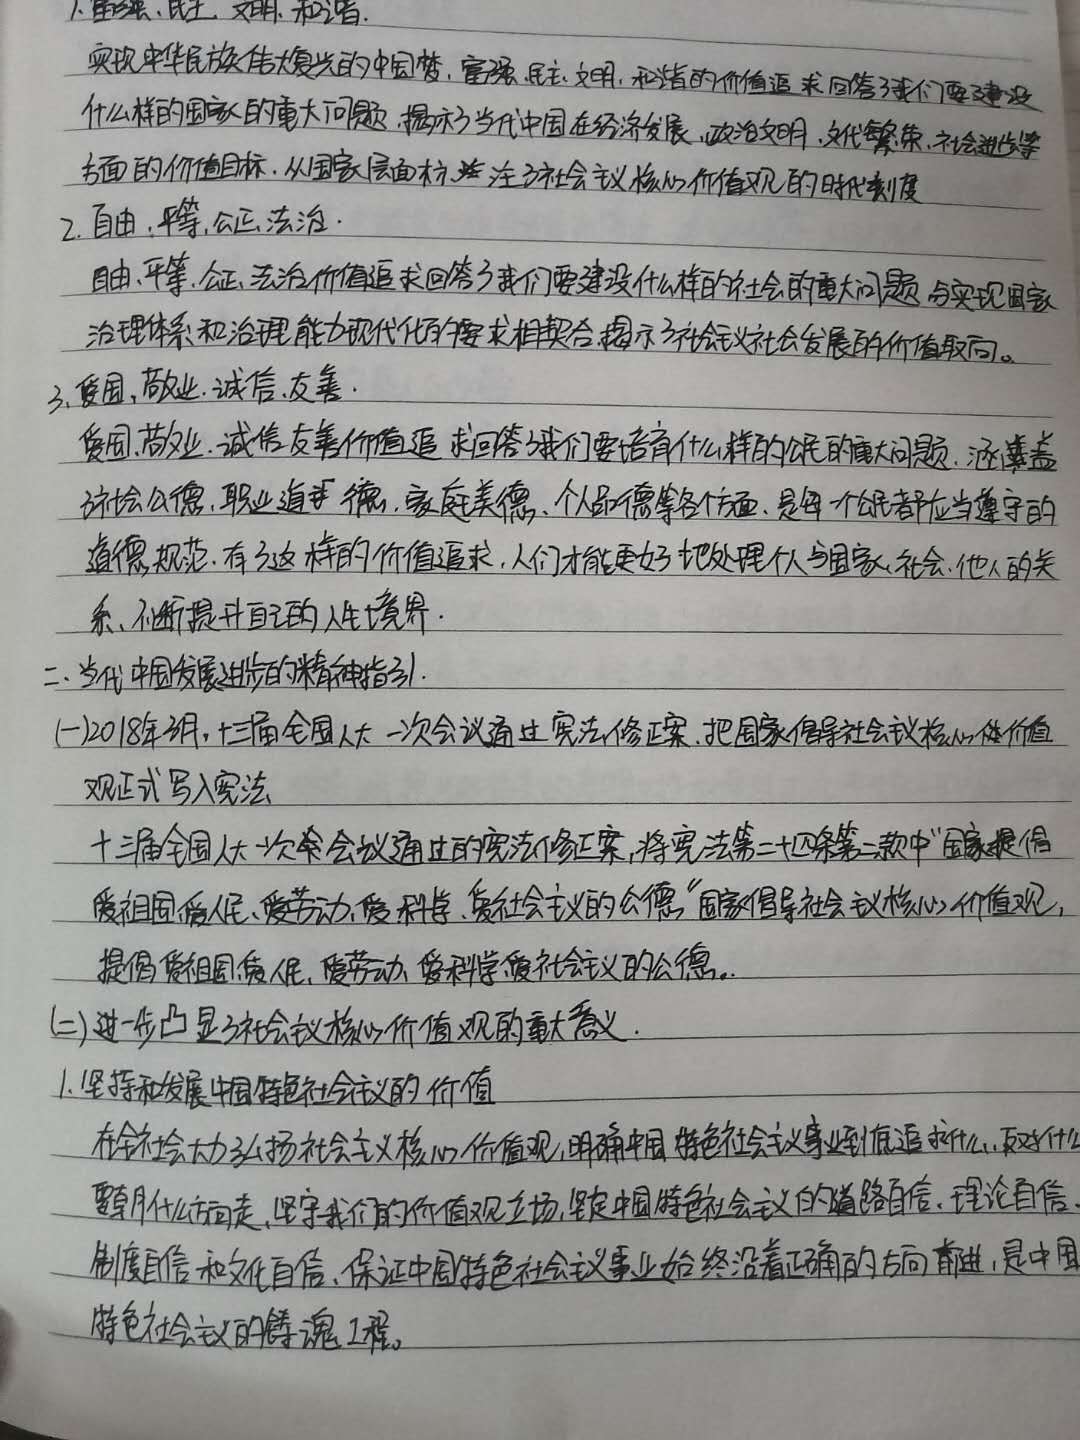 1.富强、民主、文明、和谐.
实现中华民族伟大复兴的中国梦,富强、民主、文明、和谐的价值追求回答了我们要建设
什么样的国家的重大问题,揭示了当代中国在经济发展、政治文明、文化繁荣、社会进步等
方面的价值目标,从国家层面标注了社会主义核心价值观的时代刻度
2.自由、平等、公正、法治.
自由、平等、公正、法治价值追求回答了我们要建设什么样的社会的重大问题,与实现国家
治理体系和治理能力现代化的要求相契合,揭示了社会主义社会发展的价值取向。
3、爱国、敬业、诚信、友善.
爱国、敬业、诚信、友善价值追求回答了我们要培育什么样的公民的重大问题、涵盖
了社会公德、职业道德、家庭美德、个人品德等各个方面、是每一个公民都应当遵守的
道德规范.有了这样的价值追求,人们才能更好地处理个人与国家、社会、他人的关
系、不断提升自己的人生境界.
二、当代中国发展进步的精神指引.
(一)2018年3月,十三届全国人大一次会议通过宪法修正案,把国家倡导社会主义核心价值
观正式写入宪法
十三届全国人大一次会议通过的宪法修正案,将宪法第二十四条第二款中“国家提倡
爱祖国、爱人民、爱劳动、爱科学、爱社会主义的公德”国家倡导社会主义核心价值观,
提倡爱祖国、爱人民、爱劳动、爱科学、爱社会主义的公德。
(二)进一步凸显了社会主义核心价值观的重大意义.
1.坚持和发展中国特色社会主义的价值
在全社会大力弘扬社会主义核心价值观,明确中国特色社会主义事业到底追求什么、反对什么
要朝什么方向走、坚守我们的价值观立场,坚定中国特色社会主义的道路自信、理论自信、
制度自信和文化自信、保证中国特色社会主义事业始终沿着正确的方向前进,是中国
特色社会主义的铸魂工程。